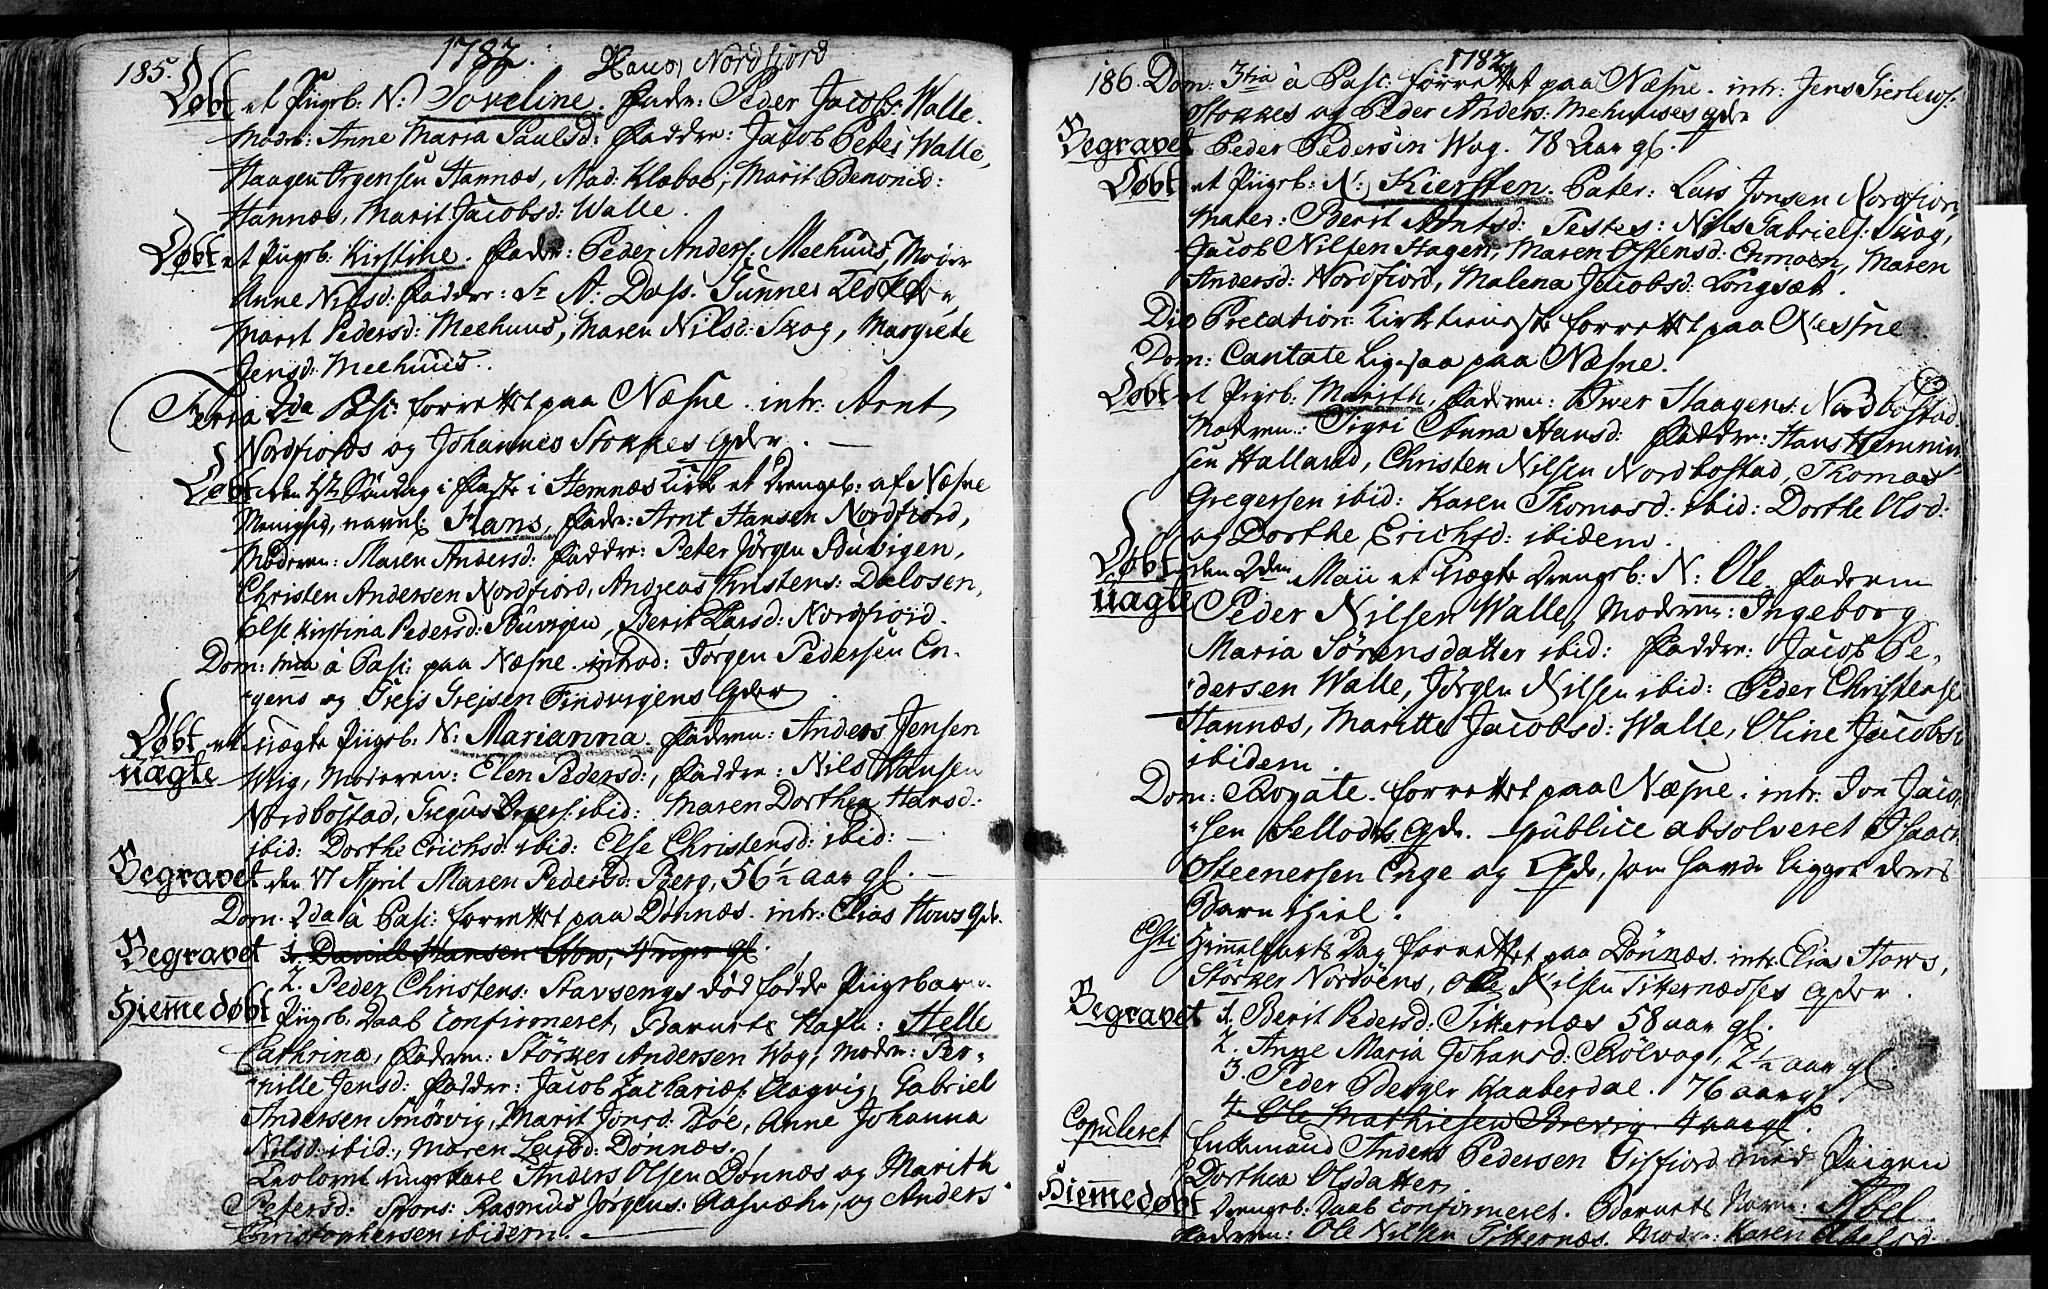 185.
1782.
Hans, Nordfjord
Døbt et Piigeb: N: Pader: Peder Jacobs: Walle.
Modr: Anne Maria Paulsd: Faddre: Jacob Peters Walle,
Haagen Jrgensen Hannæs, Mad: Klæboe, Marit Benonid:
Hannæs, Marit Jacobsd: Walle.
Døbt et Piigeb: Kirstine. Fader: Peder Anders: Meehuus, Moder
Anne Nilsd: Faddre: Sr A: Dass. Gunner
Marit Pedersd: Meehuus, Maren Nilsd: Skog, Margrete
Jensd: Meehuus.
Feria 2da Pasc: forrettet paa Næsne. intr: Arnt
Nordfiords og Johannes Stokkes qder. —
Døbt den 1ste Søndag i Faste i Hemnæs Kirke et Drengeb: af Næsne
Menighed, navnl: Hans, Fader: Arnt Hansen Nordfiord,
Moderen: Maren Andersd: Faddre: Peter Jørgen Buvigen,
Christen Andersen Nordfiord, Andreas Christens: Dalosen,
Else Kirstina Pedersd: Buvigen, Berit Larsd: Nordfiord.
Dom: 1ma à Pasc: paa Næsne. introd: Jørgen Pedersen En-
gens og Greis Greisen Findvigens qder
Døbt et uægte Piigeb: N: Marianna. Faderen: Anders Jensen
uægte
Wig, Moderen: Elen Pedersd:, Faddre: Nils Hansen
Nordbostad, Gregus ibid: Maren Dorthea Hansd:
ibid: Dorthe Erichsd ibid: Else Christensd: ibid: —
Begravet den 17 April Maren Pedersd: Berg, 56 1/2 aar gl. —
Dom. 2da à Pasc: forrettet paa Dønnæs. intr: Elias Hows qde.
Begravet 1. Daniel Hansen How, 4 uger gl.
2. Peder Christens: Stavsengs død fødde Piigebarn.
Hiemmedøbt Piigeb: Daab confirmeret, Barnets Nafn: Helle
Cathrina, Faderen: Størker Andersen Wog, Modr: Per-
nille Jensd: Faddre: Jacob Zachariæs: Aagvig, Gabriel
Andersen Smørvig, Marit Jonsd: Boe, Anne Johanna
Nilsd: ibid:, Maren Dønnæs.
Trolovet ungekarl Anders Olsen Dønnæs og Marith
Petersd: Spons: Rasmus Jørgens: og Anders
Christophersen ibidem. —
186.
1782.
Dom: 3tia à Pasc: forrettet paa Næsne. intr: Jens
Stokkes og Peder Anders: Mehuuses qder
Begravet Peder Pedersen Wog. 78 Aar gl.
Døbt et Piigeb: N: Kiersten. Pater: Lars Jonsen Nordfiord,
Mater: Berit Arntsd: Testes: Nils Gabriels: Skog,
Jacob Nilsen Hagen, Maren Ostensd: Enmoen, Maren
Andersd: Nordfiord, Malena Jacobsd: Longsæt.
Die Precation: Kirketieneste forrettet paa Nessne
Dom: Cantate ligesaa paa Næsne.
Døbt et Piigeb: Marith, Faderen: Iwer Haagens: Nordbostad
Moderen: Sigri Anna Hansd: Faddre: Hans Hemmin
sen Halland, Christen Nilsen Nordbostad, Thomas
Gregersen ibid: Karen Thomasd: ibid: Dorthe Olsd:
og Dorthe Erichsd: ibidem.
Døbt den 2den Maii et uægte Drengeb: N: Ole. Faderen
uægte
Peder Nilsen Walle, Moderen: Ingeborg
Maria Sørensdatter ibid: Faddre: Jacob Pe-
dersen Walle, Jørgen Nilsen ibid: Peder Christense
Hannæs, Maritte Jacobsd: Walle, Oline Jacobsd
ibidem.
Dom: Rogate. forrettet paa Næsne. intr: Jon Jacob
sen qde. publice absolveret Isaach
Steenersen Enge og Qde, som havde ligget deres
Barn ihiel.
Christi Himmelfarts Dag forrettet paa Dønnæs. intr: Elias Hows,
Størker Nordøens, Ole Nilsen Tikernæsses qder.
Begravet 1. Berit Pedersd: Tikernæs 58 aar gl.
2. Anne Maria Johansd: Rølvog, 2 1/2 aar gl.
3. Peder Berger Kaaberdal. 76 aar gl.
4. Ole Mathiesen Brevig. 4 aar gl.
Copuleret Enkemand Anders Pedersen Sisfiord med Piigen
Dorthea Olsdatter
Hiemmedøbt Drengeb: Daab confirmeret. Barnets Navn: Abel
Faderen: Ole Nilsen Tikernæs. Modr: Karen Abelsd: